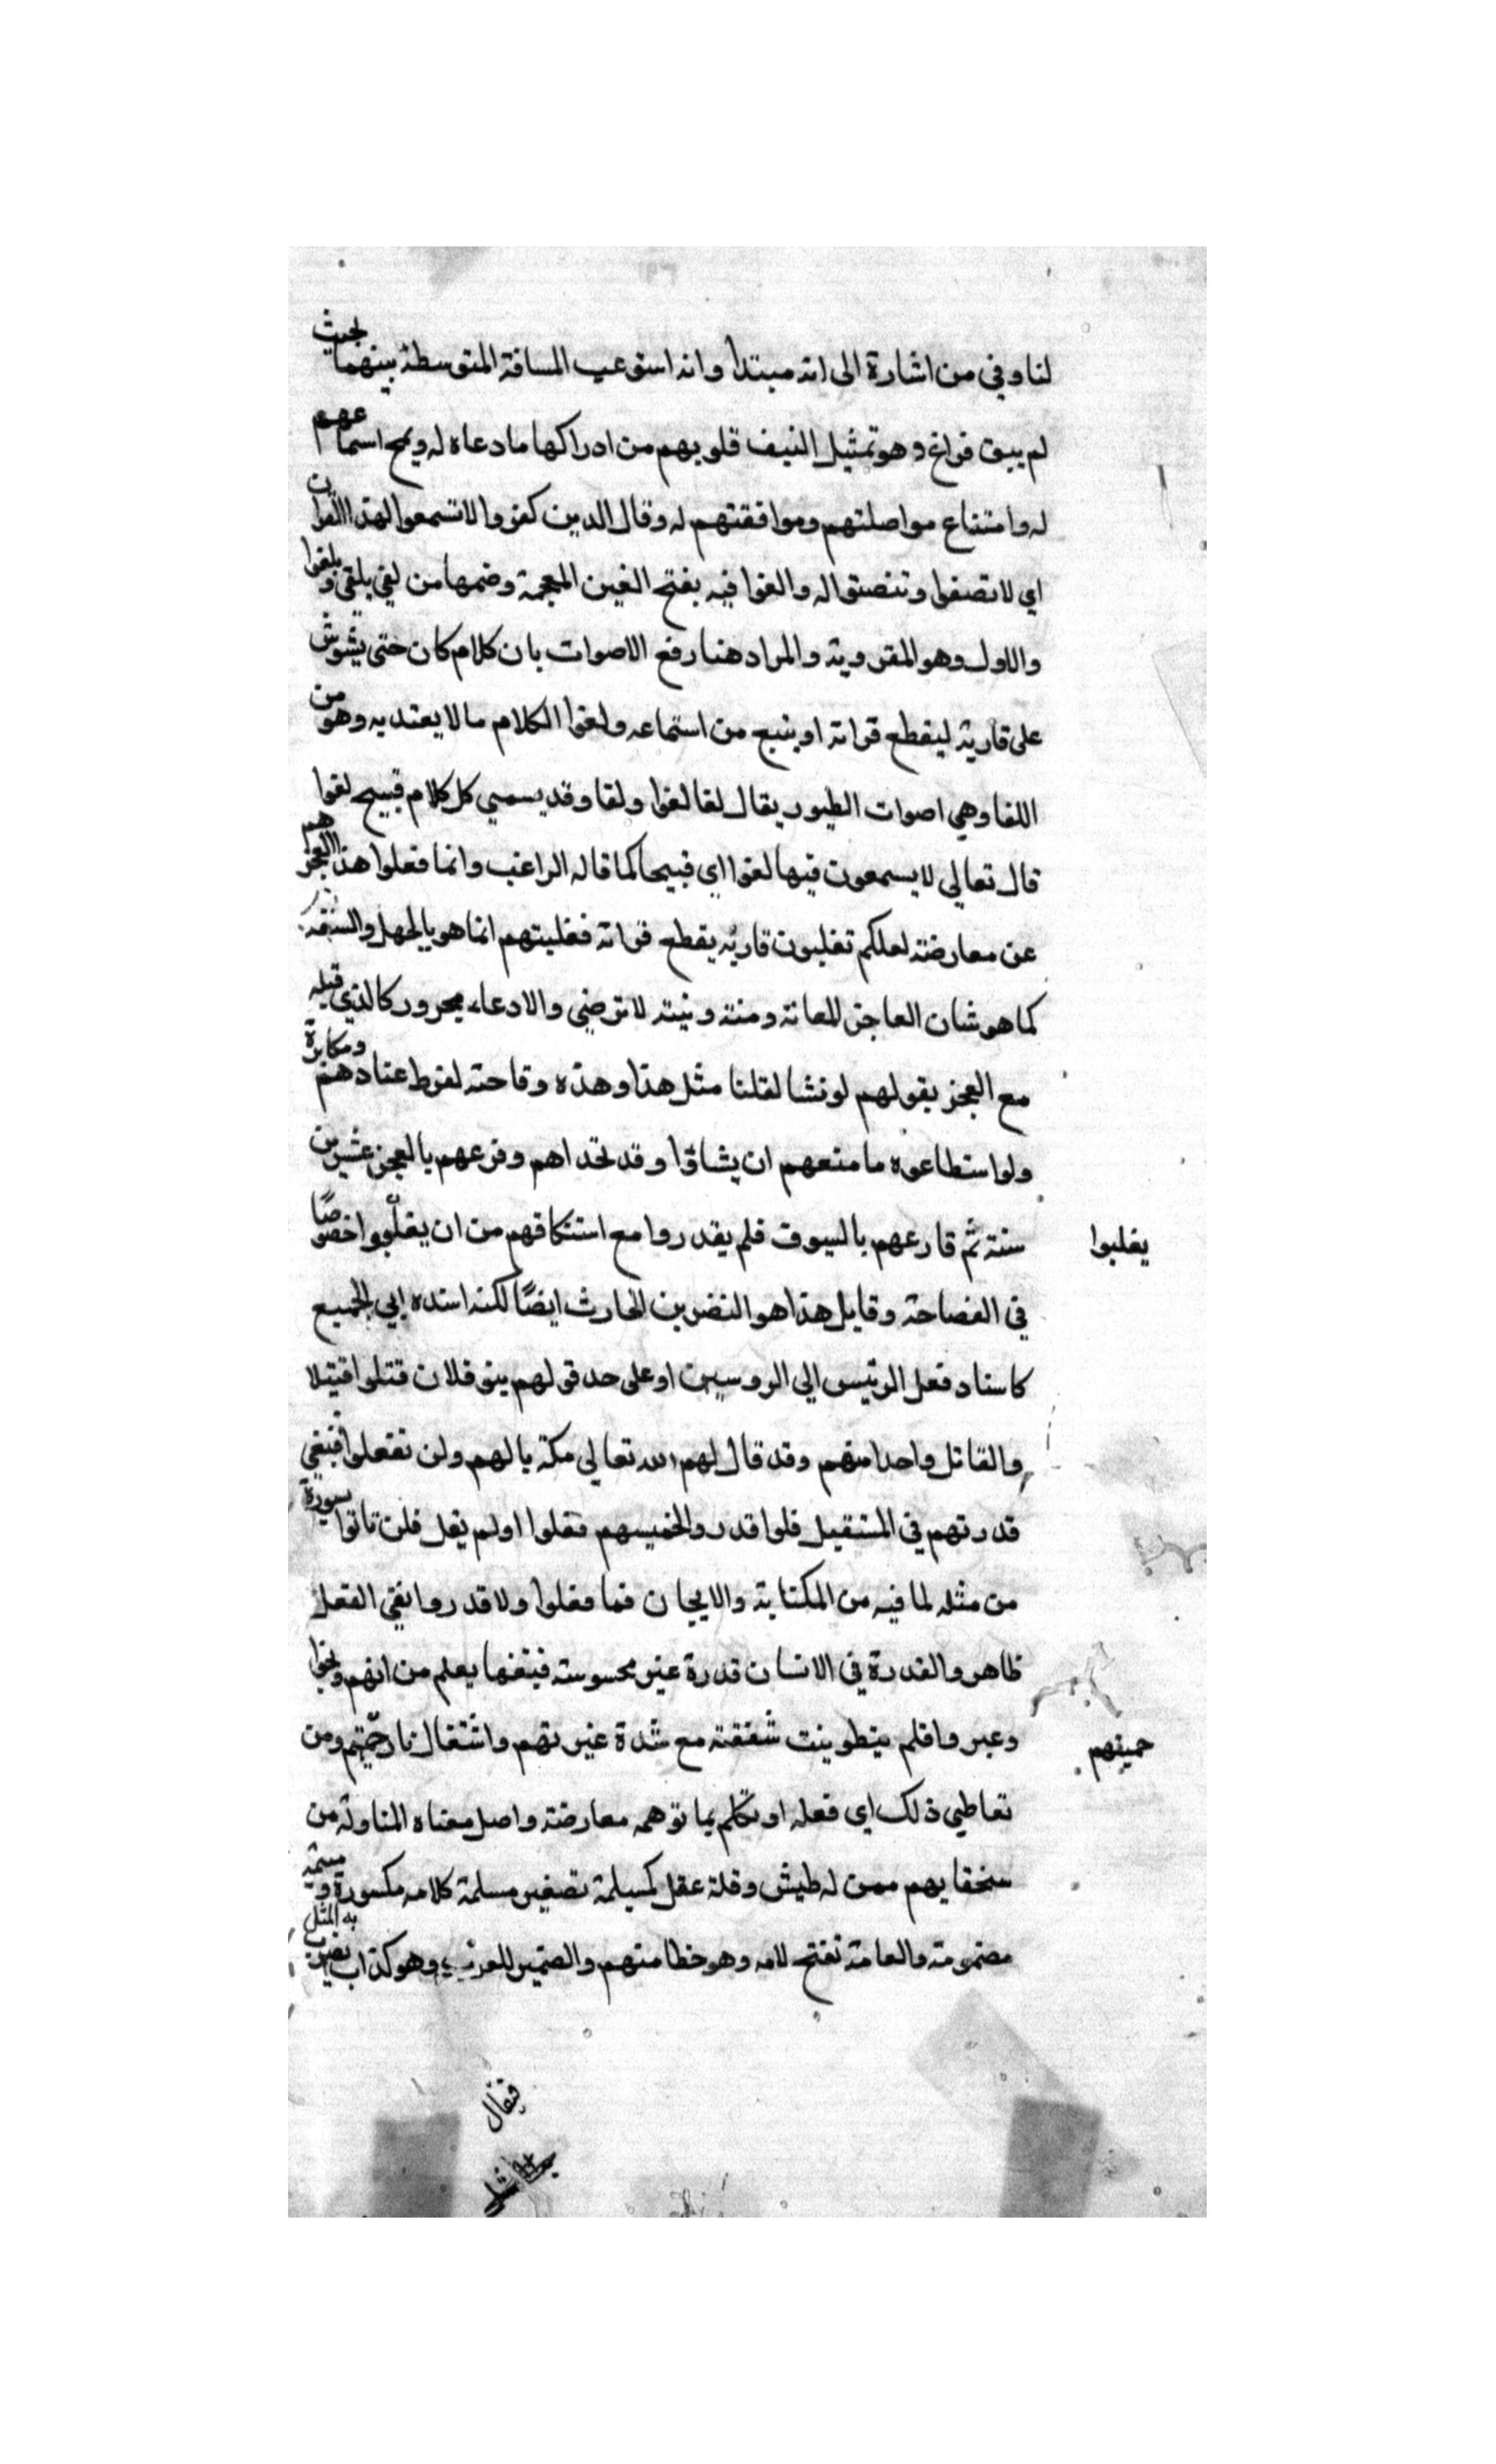 لنا وفي من اشارة الى انه مبتدا وانه استوعب المسافة المتوسطة بينهما بحيث
لم يبق فراغ وهو تمثيل قلوبهم من ادراكها ما دعاه له ويمج اسماعهم
له وامتناع مواصلتهم وموافقتهم له وقال الدين كفروا لا تسمعوا لهذا القران
اي لا تصغوا وتنصتوا له والغوا فيه بفتح الغين المعجمة وضمها من لغي يلغي ويلغوا
والاول وهو المقروبه والمراد هنا رفع الاصوات بان كلام كان حتى يشوش
على قاريه ليقطع قراته او يتبع من استماعه ولغوا الكلام ما لا يعتد به وهو من
اللغا وهي اصوات الطيور يقال لغا لغوا ولغا وقد يسمي كل كلام قبيح لغوا
قال تعالي لا يسمعون فيها لغوا اي قبيحا كما قاله الراغب وانما فعلوا هذا لعجزهم
عن معارضته لعلكم تغلبون قاريه يقطع قراته فغلبتهم انما هو بالجهل والسفه
كما هو شان العاجز ومنه لا ترضي والادعاء مجرور كالذي قبله
مع العجز بقولهم لو نشا لقلنا مثل هذا وهذه وقاحة لفرط عنادهم ومكابرة
ولو استطاعوه ما منعهم ان يشاؤا وقد تحداهم وقرعهم بالعجز عشرين
سنة ثم قارعهم بالسيوف فلم يقدروا مع استنكافهم من ان يغلبوا خصوصًا
يغلبوا
في الفصاحة وقايل هذا هو النضر بن الحارث ايضًا لكنه اسنده الي الجميع
كاسناد فعل الرئيس الي الروسين او على حد قولهم بنو فلان قتلوا قتيلا
والقاتل واحدا منهم وقد قال لهم الله تعالي مكة بالهم ولن تفعلوا فنفي
قدرتهم في المستقبل فلو قدروا فعلوا اولم يقل فلن تاتوا بسورة
من مثله لما فيه من الكناية والايجان فما فعلوا ولا قدروا نفي الفعل
ظاهر والقدرة في الانسان قدرة غير محسوسة فنفيها يعلم من انهم
وعيروا فلم مع شدة غيرتهم واشتعال نار حميتهم ومن
حميتهم
تعاطي ذلك اي فعله او تكلم بما توهمه معارضة واصل معناه المناولة من
سخفايهم ممن له طيش وقلة عقل كمسيلمة تصغير مسلمة كلامه مكسورة
مضمومة والعامة تفتح لامه وهو خطا منهم والضمير للعرب وهو كذاب يضرب به المثل
فيقال